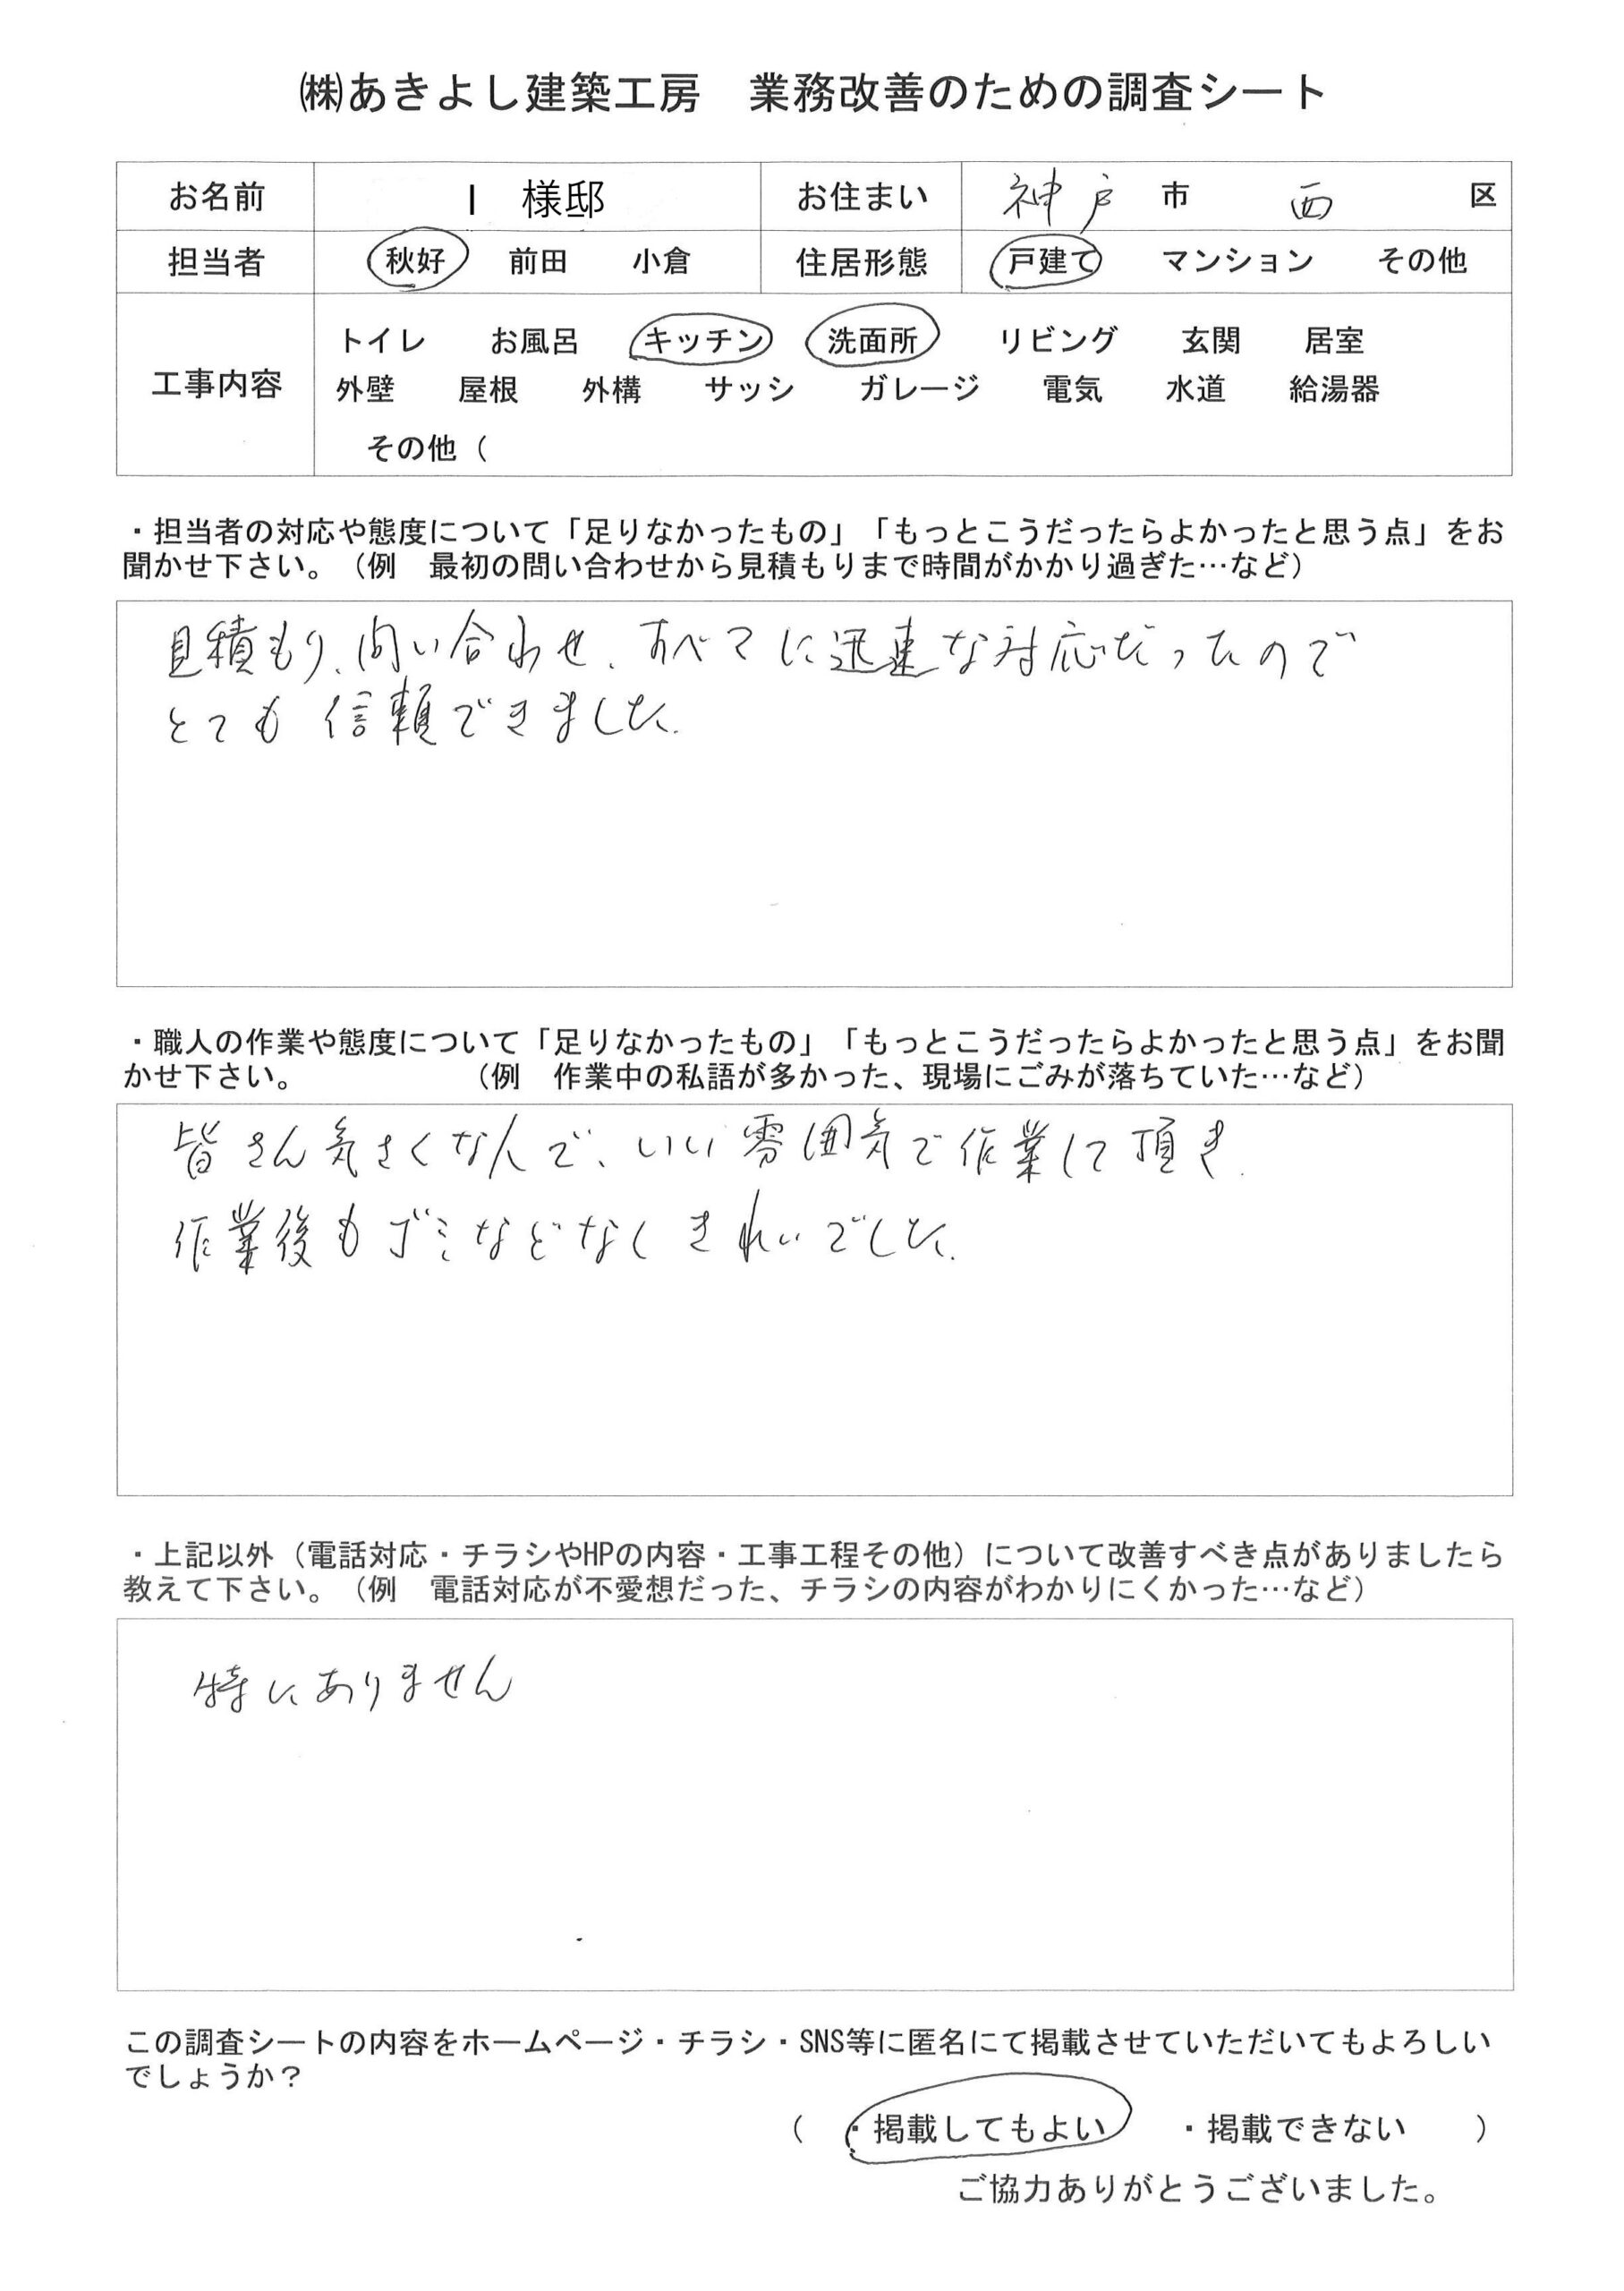 ㈱あきよし建築工房　業務改善のための調査シート
お名前　I 様邸　お住まい　神戸 市 西 区
担当者　秋好　前田　小倉　住居形態　戸建て　マンション　その他
トイレ　お風呂　キッチン　洗面所　リビング　玄関　居室
工事内容
外壁　屋根　外構　サッシ　ガレージ　電気　水道　給湯器
その他（
・担当者の対応や態度について「足りなかったもの」「もっとこうだったらよかったと思う点」をお
聞かせ下さい。（例　最初の問い合わせから見積もりまで時間がかかり過ぎた…など）
見積もり、問い合わせ、すべてに迅速な対応だったので
とても信頼できました。
・職人の作業や態度について「足りなかったもの」「もっとこうだったらよかったと思う点」をお聞
かせ下さい。　（例　作業中の私語が多かった、現場にごみが落ちていた…など）
皆さん気さくな人で、いい雰囲気で作業して頂き、
作業後もゴミなどなくきれいでした。
・上記以外（電話対応・チラシやHPの内容・工事工程その他）について改善すべき点がありましたら
教えて下さい。（例　電話対応が不愛想だった、チラシの内容がわかりにくかった…など）
特にありません
この調査シートの内容をホームページ・チラシ・SNS等に匿名にて掲載させていただいてもよろしい
でしょうか？
（　・掲載してもよい　・掲載できない　）
ご協力ありがとうございました。